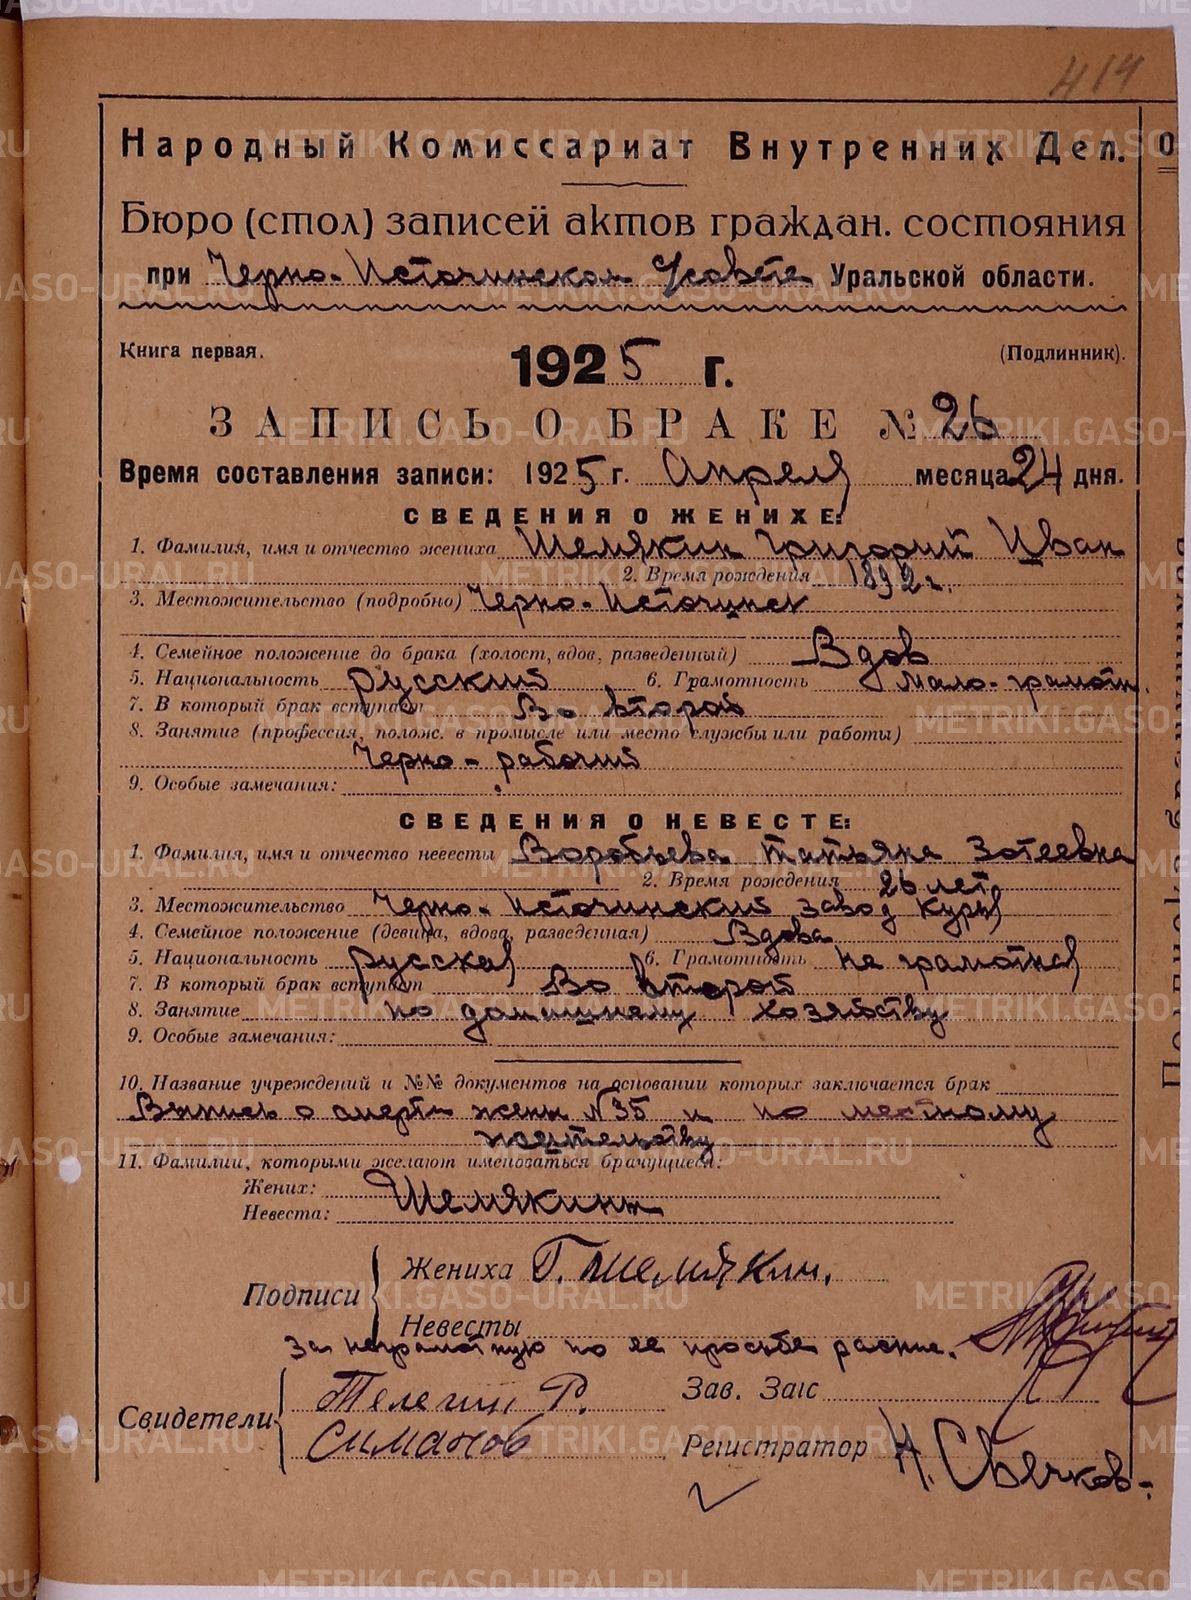 414
Народный Комиссариат Внутренних Дел.
Бюро (стол) записей актов граждан. состояния
при Черно-Источинском Усовете Уральской области.
Книга первая. (Подлинник).
1925 г.
ЗАПИСЬ О БРАКЕ № 26
Время составления записи: 1925 г. Апреля месяца 24 дня.
СВЕДЕНИЯ О ЖЕНИХЕ:
1. Фамилия, имя и отчество жениха Шемякин Григорий Иван
2. Время рождения 1892 г.
3. Местожительство (подробно) Черно-Источинск
4. Семейное положение до брака (холост, вдов, разведенный) Вдов
5. Национальность русский 6. Грамотность мало-грамотн.
7. В который брак вступает Во второй
8. Занятие (профессия, полож. в промысле или место службы или работы)
Черно-рабочий
9. Особые замечания:
СВЕДЕНИЯ О НЕВЕСТЕ:
1. Фамилия, имя и отчество невесты Воробьева Татьяна Зотеевна
2. Время рождения 26 лет
3. Местожительство Черно-Источинский завод
4. Семейное положение (девица, вдова, разведенная) Вдова
5. Национальность русская 6. Грамотность не грамотная
7. В который брак вступает Во второй
8. Занятие по домашнему хозяйству
9. Особые замечания:
10. Название учреждений и №№ документов на основании которых заключается брак
Выпись о смерти жены №35 и по местному
жительству
11. Фамилии, которыми желают именоваться брачущиеся:
Жених:
Шемякины
Невеста:
Подписи
Жениха Г. Шемякин.
Невесты
За неграмотную по ее просьбе распис.
Свидетели
Телегин Р.
Зав. Загс
Симанов
Регистратор Н. Свечков.